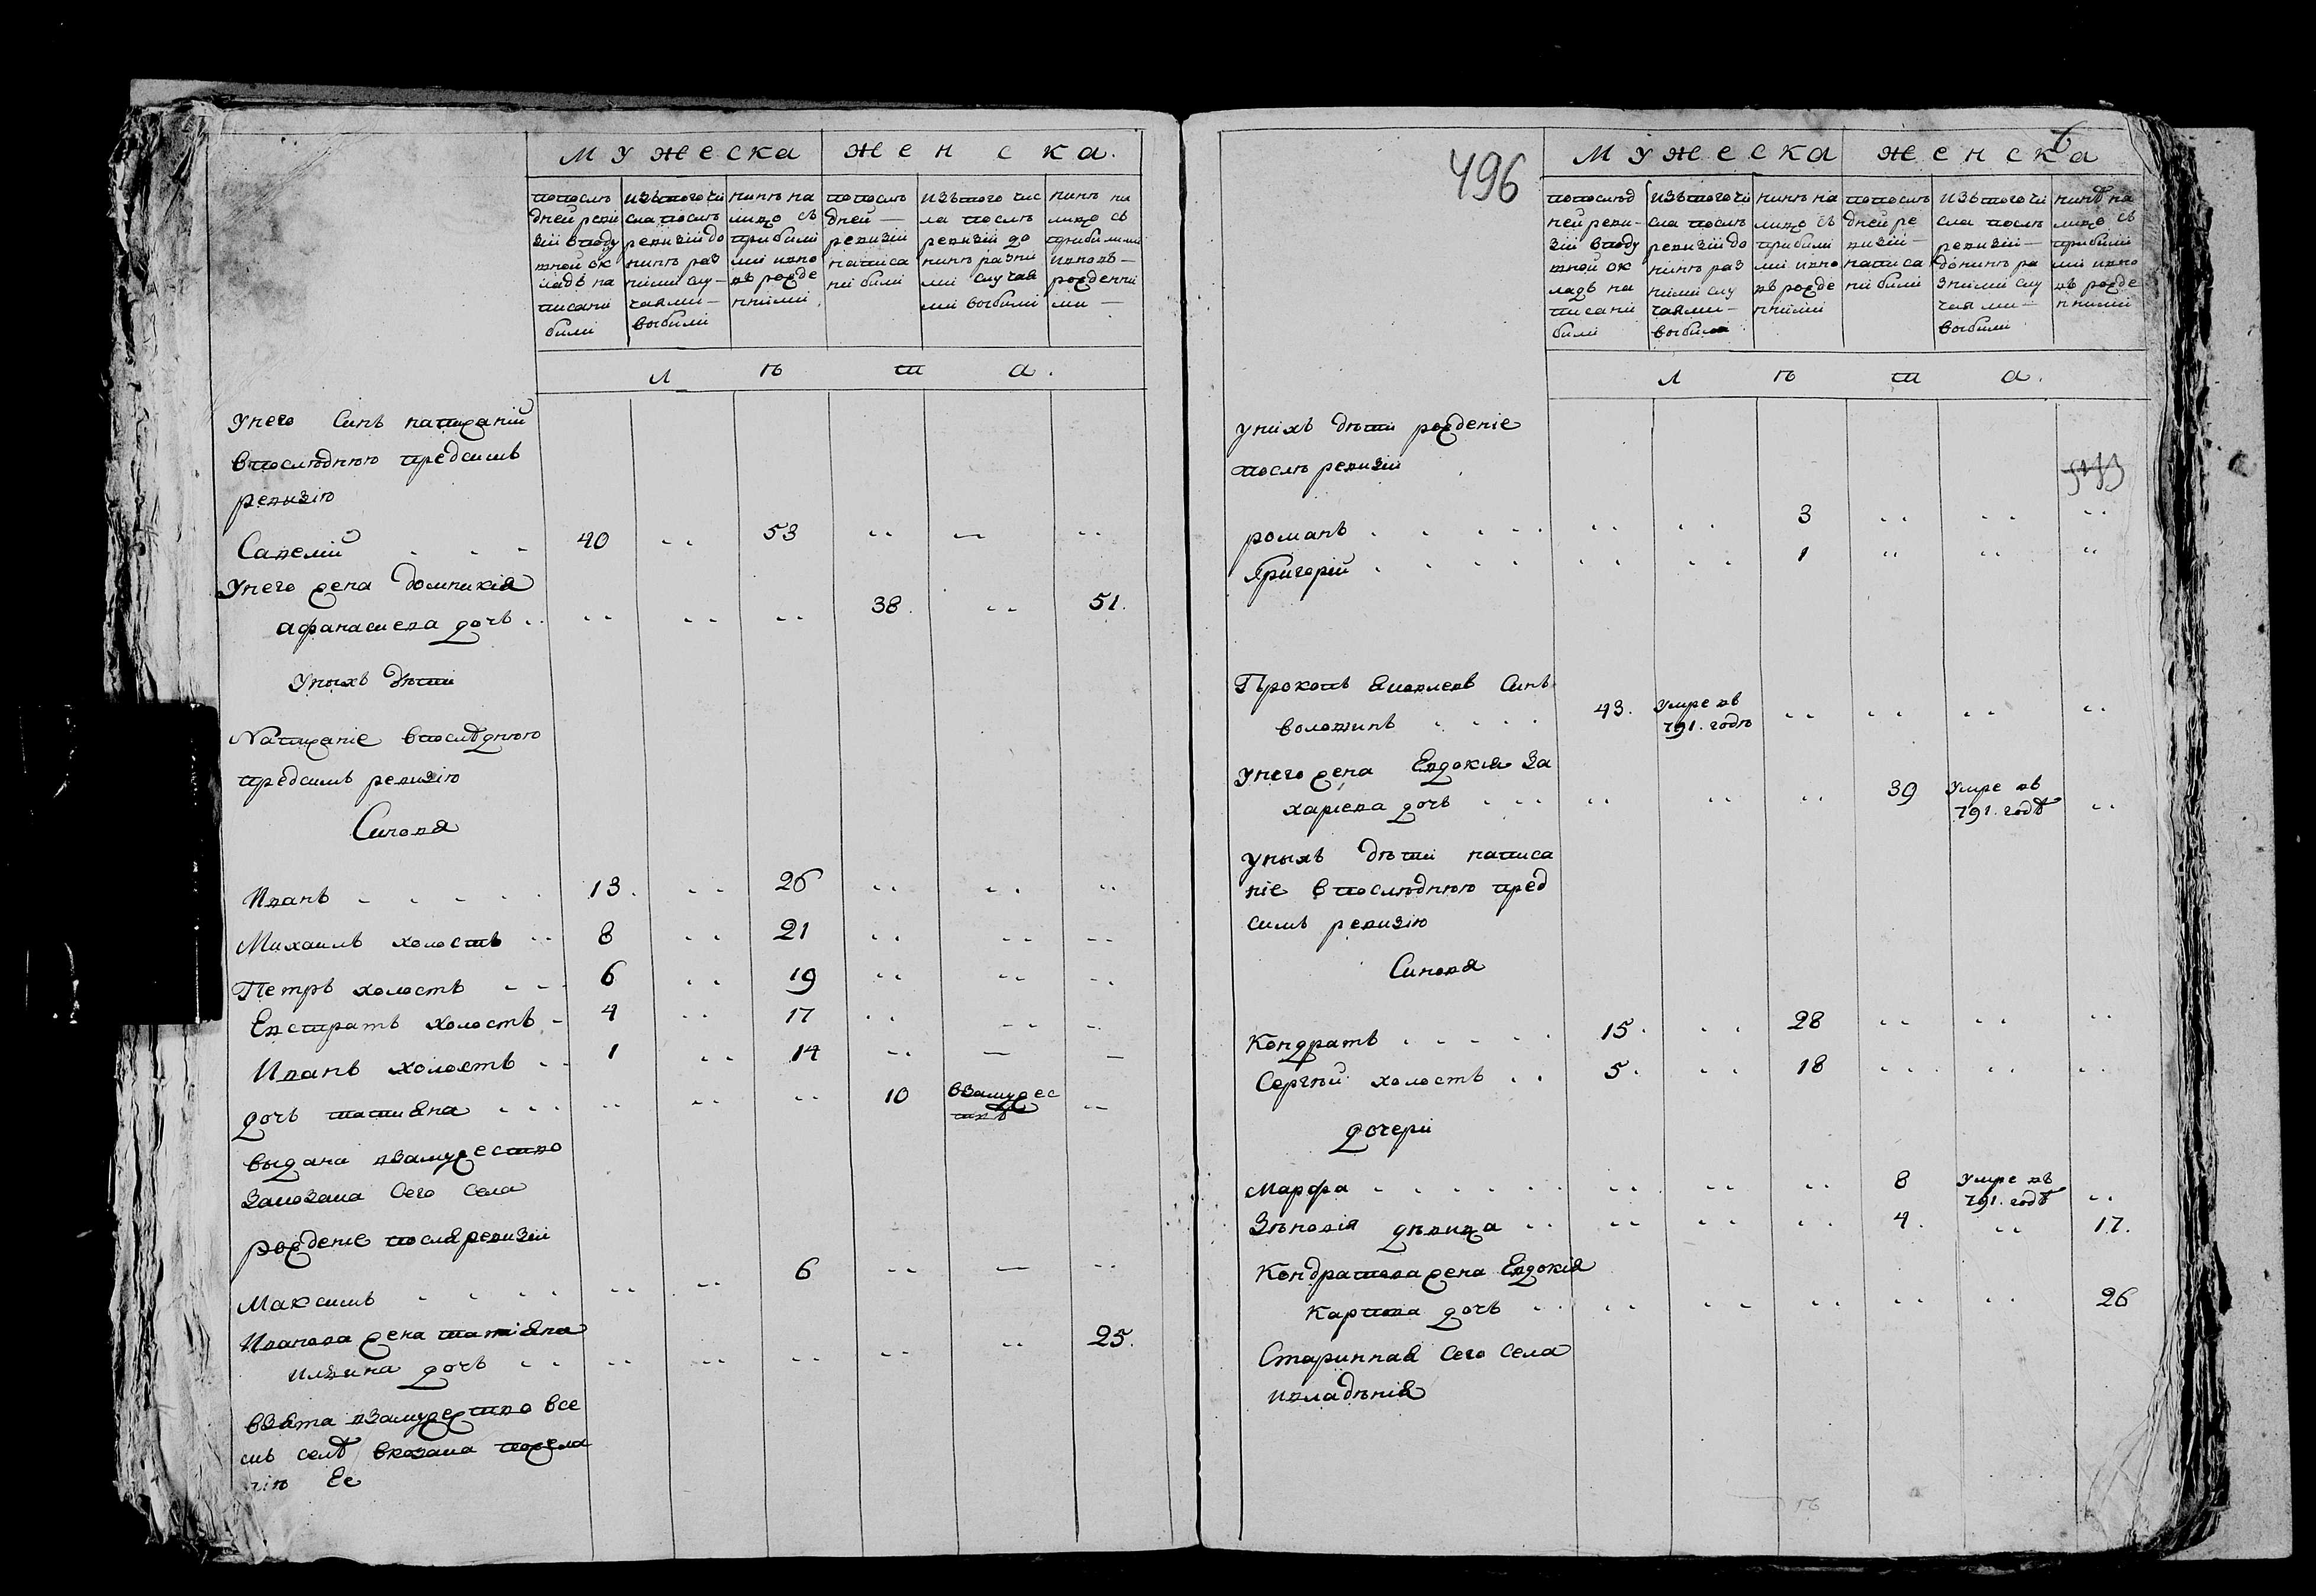 Мужеска Женска.
попослѣ дней ревизіи вподушной окладъ написани били
изътого числа послѣ ревизіи до нинѣ разними случаями вибили
нинѣ на лицо съ прибилими ивновъ рожденними
попослѣ дней ревизіи написани били
изътого числа послѣ ревизіи до нинѣ разними случаями вибили
нинѣ на лицо съ прибилими ивновь рожденними
Лѣта.
Унего Синъ написаній
впослѣднюю предсимъ
ревизію
Савелій 40 53
Унего жена Домникія
Афанасиева дочь 38. 51.
Унихъ дѣти
Написаніе впослѣднюю
предсимъ ревизію
Синовя
Иванъ 13. 26
Михаилъ холостъ 8 21
Петръ холостъ 6 19
Евстратъ холостъ 4 17
Иванъ холостъ 1 14
дочь татияна 10 взамужес
твѣ
выдана взамужество
Сего Села
рожденіе послѣ ревизіи
Максимъ 6
Иванова жена татіяна
Илѣина дочь 25.
взята взамужество все
мъ селѣ вказака
Ее
496
6
Мужеска Женска
попослѣд ней ревизіи вподушной окладъ написани били
изътого числа послѣ ревизіи до нинѣ разними случаями вибили
нинѣ на лицо съ прибилими ивновъ рожденними
попослѣ дней ревизіи написани били
изътого числа послѣ ревизіи донинѣ разними случаями вибили
нинѣ на лицо съ прибилими ивновъ рожденними
Лѣта.
унихъ дѣти рожденіе
послѣ ревизіи
романъ 3
Григорій 1
Прокопъ Яковлевъ Синъ
43. Умре въ
791. годѣ
Унего жена Евдокія За
харіева дочь 39 Умре въ
791. годѣ
унихъ дѣти написа
ніе впослѣднюю пред
симъ ревизію
Синовя
Кондратъ 15. 28
Сергѣй холостъ 5. 18
дочери
Марфа 8 Умре въ
791. годѣ
Зѣновія дѣвица 4. 17.
Кондратова жена Евдокія
Карпова дочь 26
Старинная Сего Села
ивладѣнія